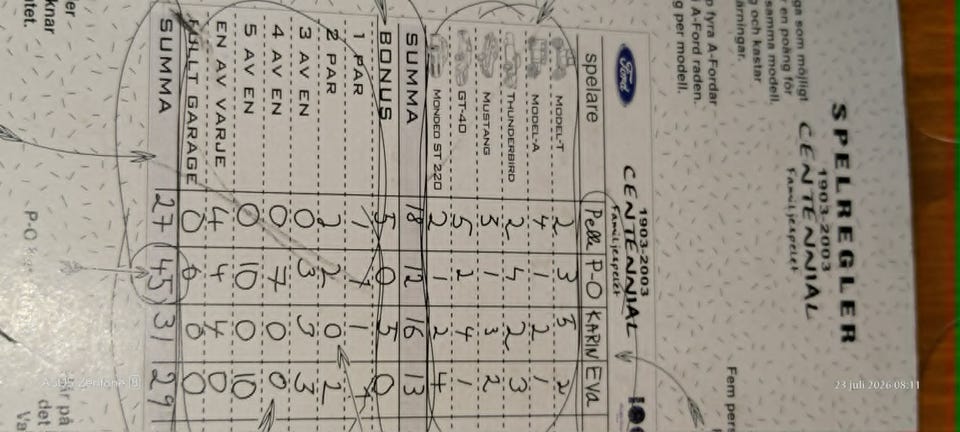 SPELREGLER
1903-2003
CENTENNIAL
Familjespelet
ga som möjligt
en poäng för
samma modell.
och kastar
fyra A-Fordar
A-Ford raden.
g per modell.
Fem pers
1903-2003
CENTENNIAL
Familjespelet
Ford
spelare Pelle P-O KARIN Eva
MODEL-T 2 3 3 2
MODEL-A 4 1 2 1
THUNDERBIRD 2 4 2 3
MUSTANG 3 1 3 2
GT-40 5 2 4 1
MONDEO ST 220 2 1 2 4
SUMMA 18 12 16 13
BONUS 5 0 5 0
1 PAR 1 1 1 1
2 PAR 2 2 0 2
3 AV EN 0 3 3 3
4 AV EN 0 7 0 0
5 AV EN 0 10 0 10
EN AV VARJE 4 4 4 0
FULLT GARAGE 0 0 0 0
SUMMA 27 45 31 29
P-O
på
det
Va
knar
tet.
ASUS Zenfone 8
23 juli 2026 08:11